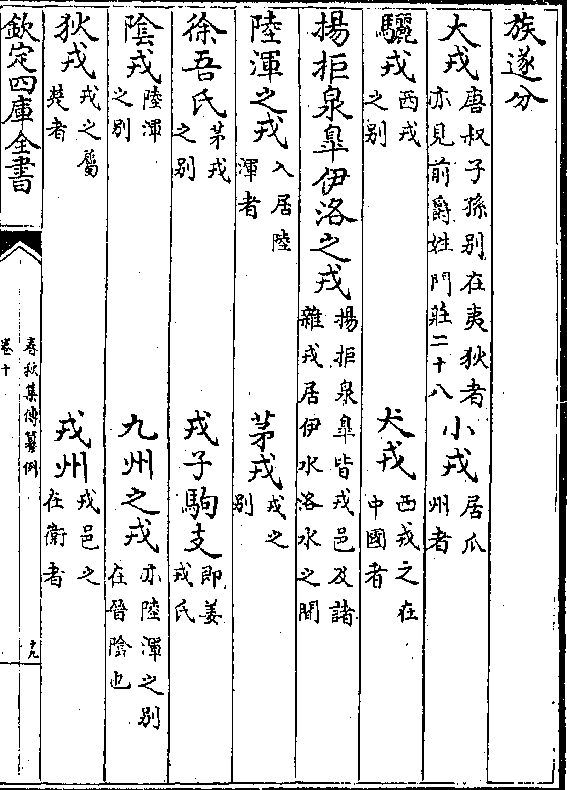 族遂分
大戎唐叔子孫别在夷狄者亦見前爵姓門莊二十八小戎居瓜州者
驪戎西戎之别犬戎西戎之在中國者
揚拒泉臯伊洛之戎揚拒泉臯皆戎邑及諸雜戎居伊水洛水之閒
陸渾之戎入居陸渾者茅戎戎之别
徐吾氏茅戎之别戎子駒支即姜戎氏
陰戎陸渾之别九州之戎亦陸渾之别在晉陰也
狄戎戎之屬楚者戎州戎邑之在衛者
欽定四庫全書
春秋集傳纂例
卷十
十九